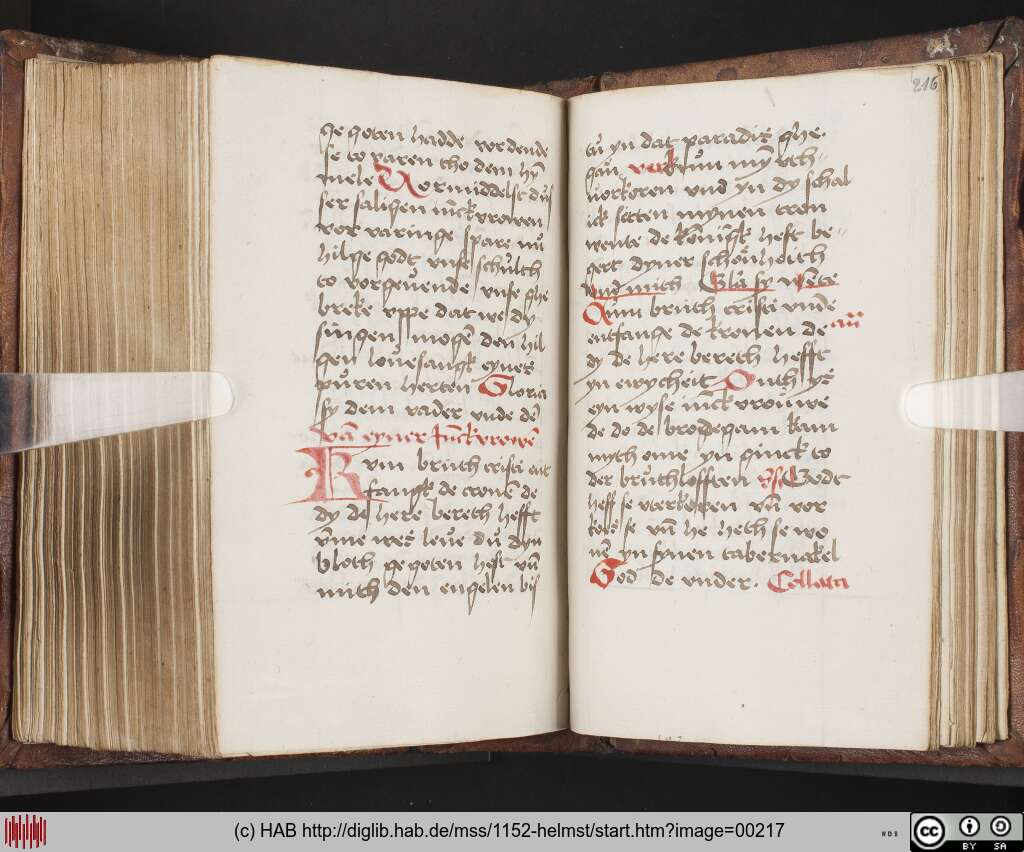 ge goten hadde vordende
se to varen tho dem hy̅
mele Vormiddelst dus
ser saligen iu̅ckvrowen
vor varinge spare nu
hilge godt vnse schulth
to vorgeuende vnse ghe
breke vppe dat we dy
singen moge̅ den hil
gen louesangk eynes
puren herten Gloria
sy dem vader vnde de̅
Va̅ eyner Iu̅ckvrowe̅
Kvm bruth cristi ent
fangk de crone de
dy de here bereth hefft
v̅me wes leue du dyn
bloth ge goten hest vn̅
mith den engelen bis
216
tu yn dat paradis ghe
gan̅ vers Kum myn vth
uorkoren vnd yn dy schal
ick setten mynen tron
wente de konnigk heft be
gert dyner schonheith
vnd mith Gla sy we̅te
an̅
Kum bruth cristi vnde
entfange de kronen de
dy de here bereth hefft
yn ewycheit Duth ys
eyn wyse iu̅ckvrouwe
de do de brodegam kam
myth ome yn ginck to
der bruthlofften Godt
heff se vterkoren vn̅ vor
kors se vn̅ he heth se wo
ne̅ yn synen tabernakel
God de vnder. Collatn
(c) HAB http://diglib.hab.de/mss/1152-helmst/start.htm?image=00217
WDB
cc BY SA